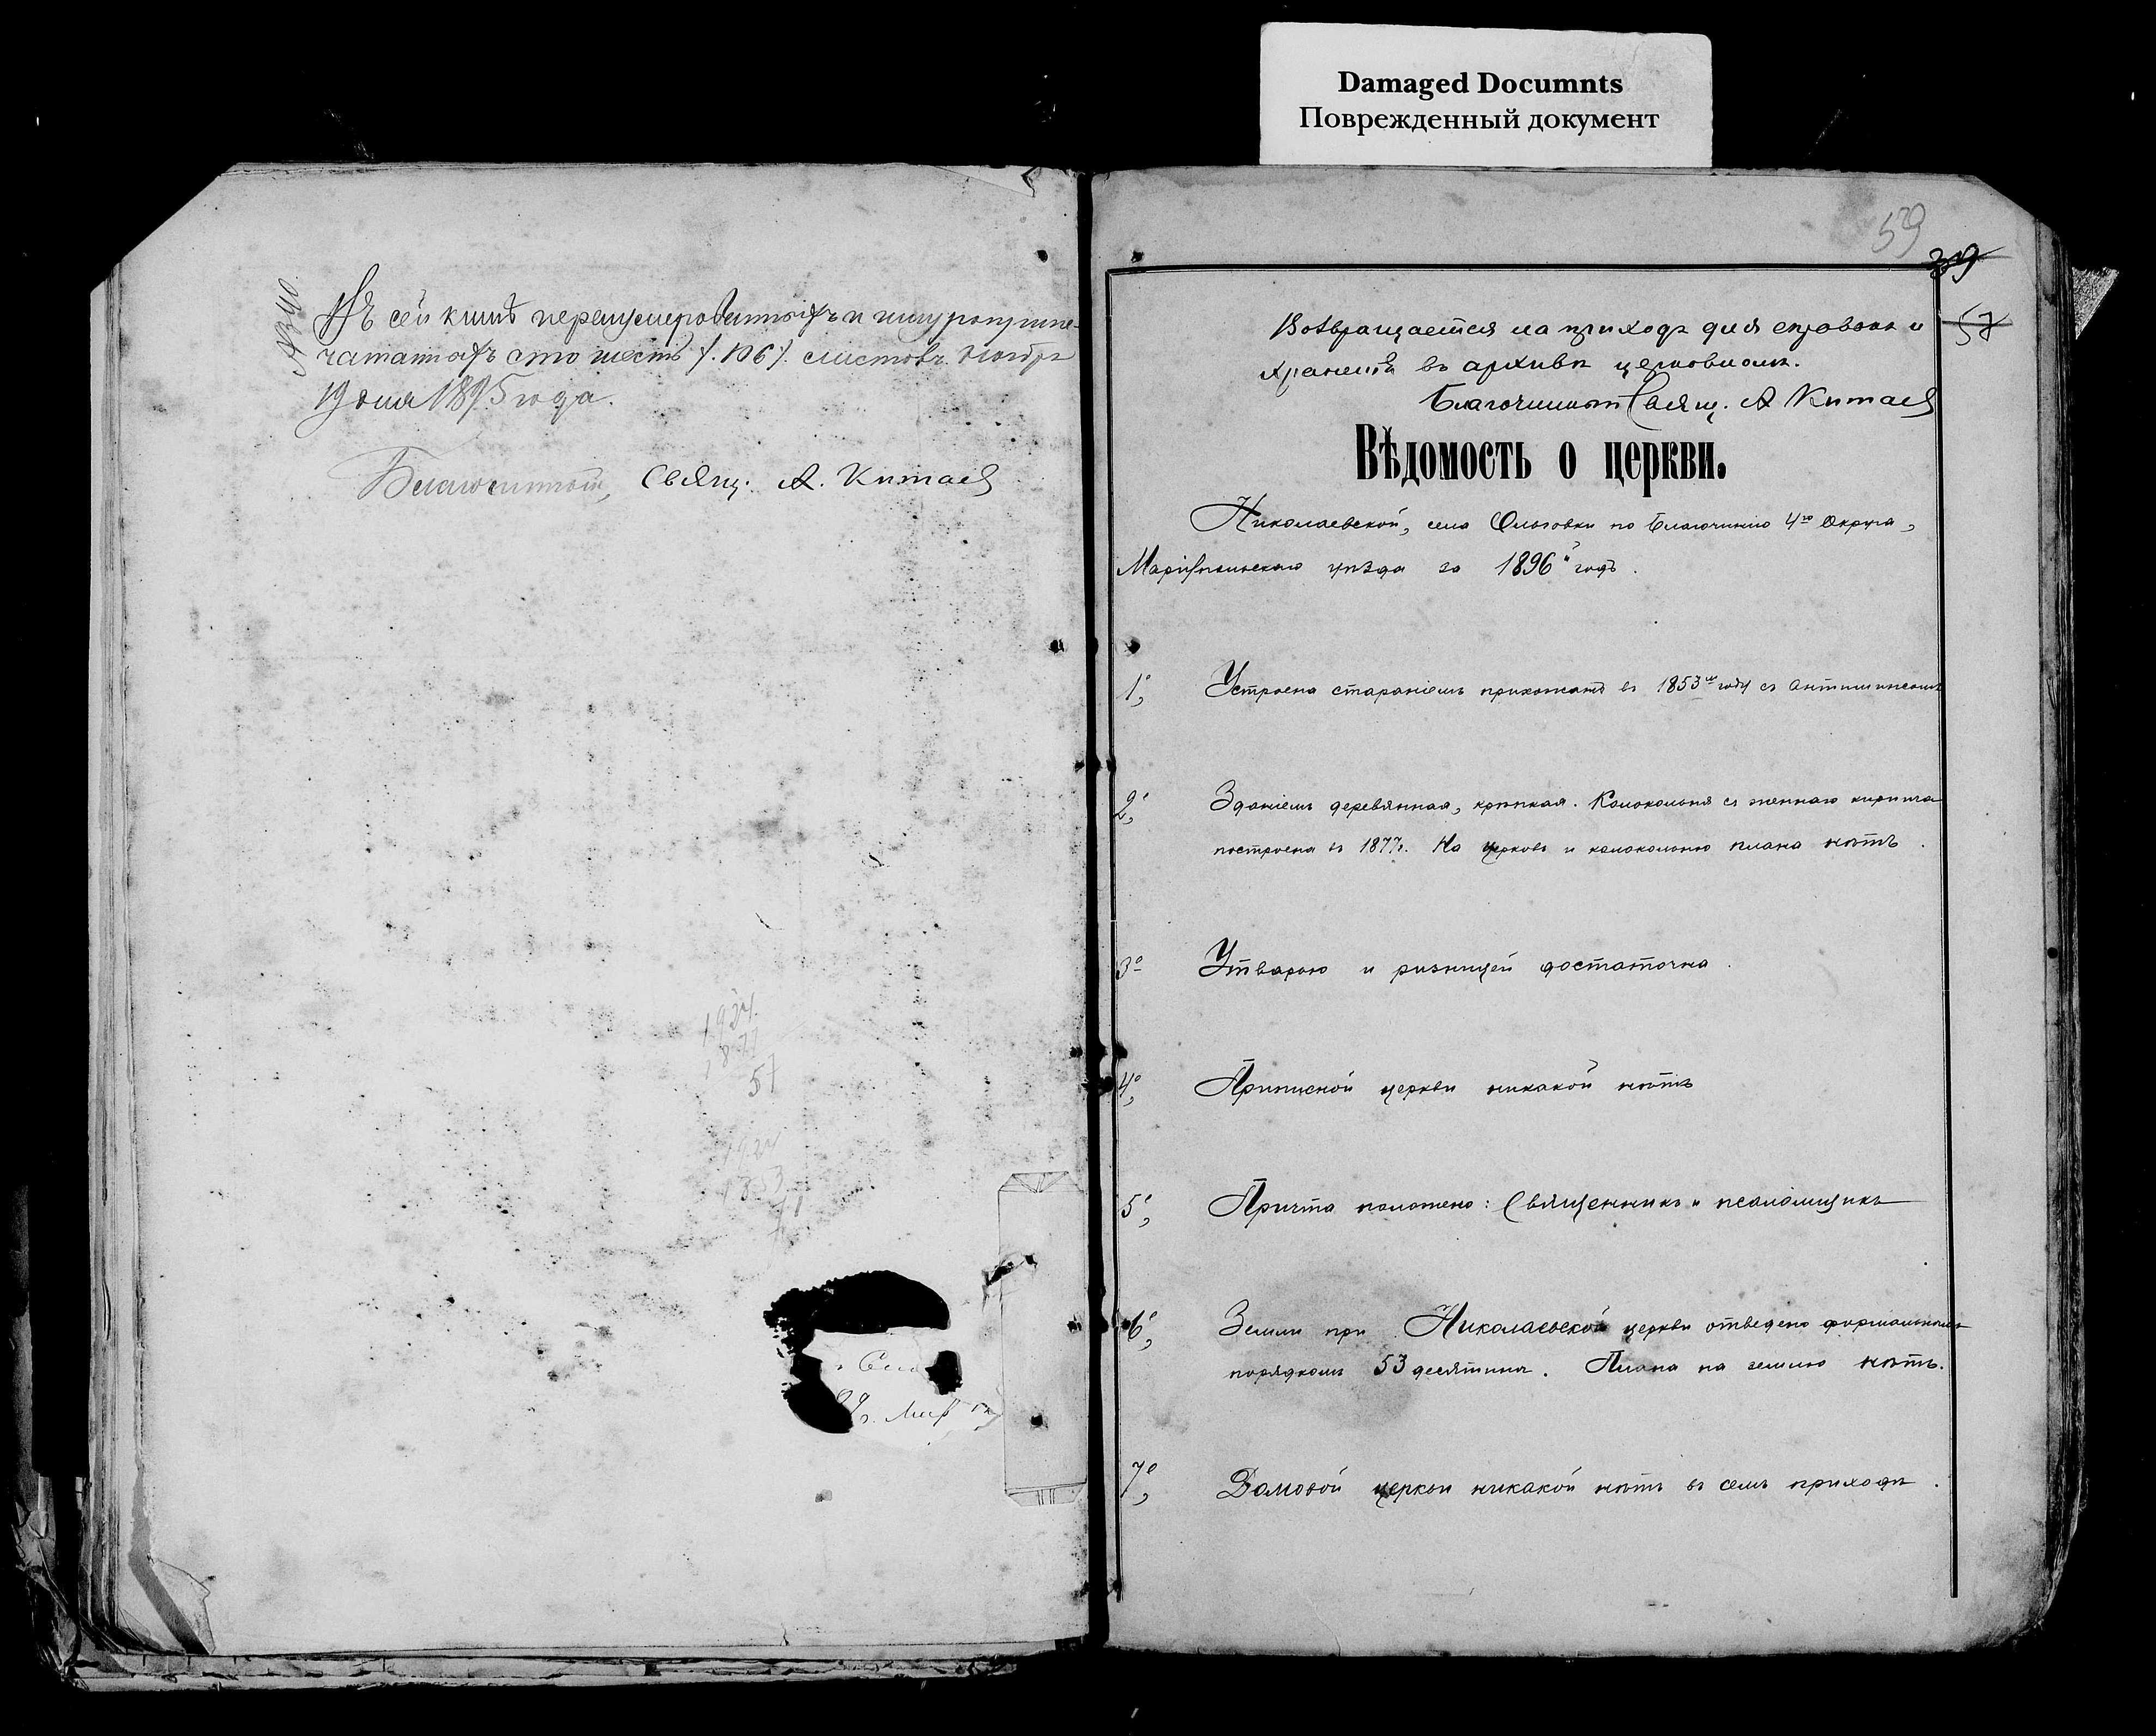 Damaged Documnts
Поврежденный документ
Въ сей книгѣ перенумерованныхъ и шнуроприпе-
чатанныхъ сто шесть /. 106 /. листовъ. Ноября
19 дня 1895 года.
Благочинный, Свящ. А. Китаевъ
1924
1871
1924
1853
71
59
39
57
Возвращается на приходъ для справокъ и
храненія въ архивѣ церковномъ.
Благочинный Свящ. А Китаевъ
Вѣдомость о церкви.
Николаевской, села Ольговки по Благочинію 4го Округа,
Маріупольскаго уѣзда за 1896й годъ.
1, Устроена стараніемъ прихожанъ въ 1853мъ году съ Антиминсомъ
2, Зданіемъ деревянная, крѣпкая. Колокольня съ женнаго кирпича
построена въ 1877г. На церковь и колокольню плана нѣтъ.
3 Утварью и ризницей достаточна.
4, Приписной церкви никакой нѣтъ
5, Причта положено: Священникъ и псаломщикъ
6, Земли при Николаевской церкви отведено формальнымъ
порядкомъ 53 десятины. Плана на землю нѣтъ.
7, Домовой церкви никакой нѣтъ въ семъ приходѣ.